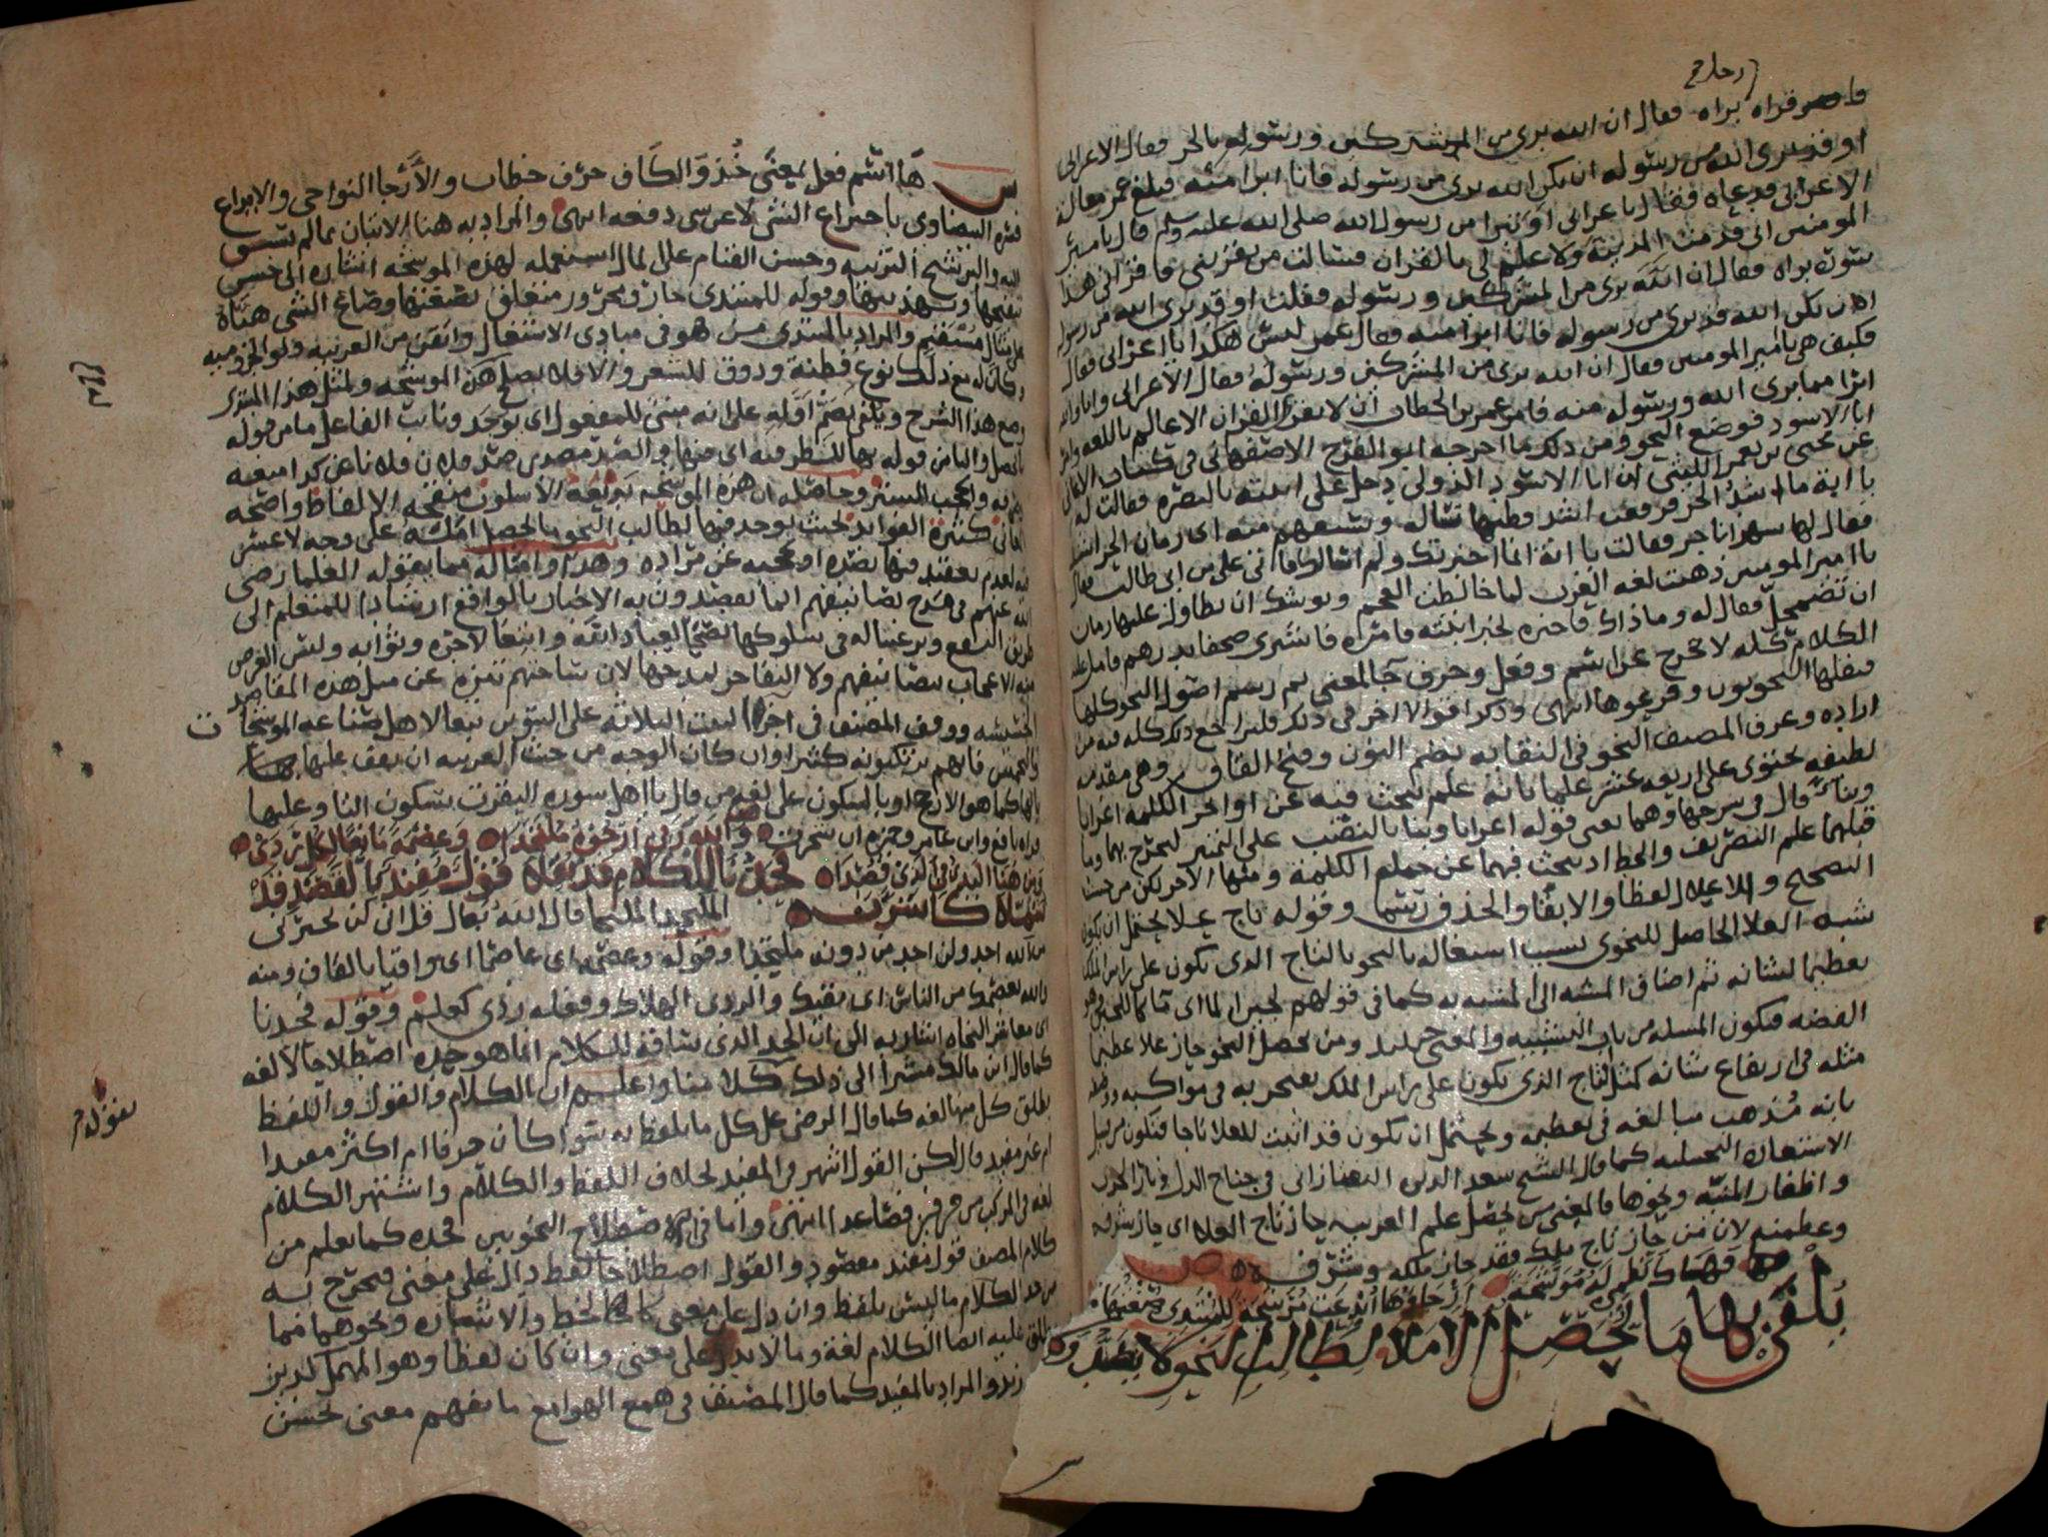 رجل
فقال ان الله بري من المشركين ورسوله بالجر فقال الاعرابي
او قد بري الله من رسوله ان يكن الله بري من رسوله فانا ابرا منه فبلغ عمر مقالة
الاعرابي فدعاه فقال يا عرابي اوتبرا من رسول الله صلى الله عليه وسلم قال يا امير
المومنين اني قدمت المدينة ولا علم لي بالقران فسالت من يقريني فاقراني هذا
سورة براه فقال ان الله بري من المشركين ورسوله فقلت او قد بري الله من رسوله
ان يكن الله قد بري من رسوله فانا ابرا منه فقال عمر ليس هكذا يا اعرابي فقال
فكيف هي يا امير المومنين فقال ان الله بري من المشركين ورسوله فقال الاعرابي وانا والله
ابرا مما بري الله ورسوله منه فامر عمر بن الخطاب ان لا يقرا القران الا عالم باللغه وامر
ابا الاسود فوضع النحو ومن ذلك ما اخرجه ابو الفرج الاصفهاني في كتاب الاغاني
عن يحيى بن يعمر الليثي ان ابا الاسود الدولي دخل على ابنته بالبصره فقالت له
يا ابة ما اشد الحر فرفعت اشد فظنها تساله وتستفهم منه اي زمان الحر اشد
فقال لها شهر ناجر فقالت يا ابة انما اخبرتك ولم اسالك فاتى علي بن ابي طالب فقال
يا امير المومنين ذهبت لغه العرب لما خالطت العجم ويوشك ان تطاول عليها زمان
ان تضمحل فقال له وما ذاك فاخبره لخبر ابنته فامره فاشترى صحفا بدرهم فاملى عليه
الكلام كله لا يخرج عن اسم وفعل وحرف جا لمعنى ثم رسم اصول النحو كلها
فنقلها النحويون وفرعوها انتهى وذكر اقوالا اخر في ذلك فليراجع ذلك كله فيه من
اراده وعرف المصنف النحو في النقايه بضم النون وفتح القاف وهي مقدمه
لطيفه تحتوي على اربعه عشر علما بانه علم يبحث فيه عن اواخر الكلمه اعرابا
وبنا قال في شرحها وهما يعني قوله اعرابا وبنا بالنصب على التمييز ليخرج بهما وما
قبلهما علم التصريف والخط اذ يبحث فيهما عن جملة الكلمة ومنها الاخر لكن من حيث
التصحيح والاعلال لفظا والابقا والحذف رسما وقوله تاج علا يحتمل ان يكون
شبه العلا الحاصل للنحوي بسبب اشتغاله بالنحو بالتاج الذي يكون على راس الملك
تعظيما لشانه ثم اضاف المشبه الى المشبه به كما في قولهم لجين الما اي ما كاللجين وهو
الفضه فتكون المسله من باب التشبيه والمعنى حينيذ ومن يحصل النحو حاز علا عظيما
مثله في ارتفاع شانه كمثل التاج الذي يكون على راس الملك يفتخر به في مواكبه
بانه مذهب مبالغه في تعظيمه ويحتمل ان يكون قد اثبت للعلا تاجا فتكون من قبيل
الاستعاره التخييليه كما قال الشيخ سعد الدين التفتازاني في جناح الذل
واظفار المنيه ونحوها فالمعنى من يحصل علم العربيه حاز تاج العلا اي حاز شرفه
وعظمته لان من حاز تاج ملك فقد حاز ملكه وشرفه
ص فهاك نظمي له موشحة ارجاوها ابدعت مرشحة للمبتدي صنعتها
يلفى بها ما يحصل الامل لطالب النحو لا يصد
ها اسم فعل بمعنى خذ والكاف حرف خطاب والارجا النواحي والابداع
فسره البيضاوي باختراع الشي لا عن شي دفعه انتهى والمراد به هنا الاتيان بما لم يسبق
اليه والترشيح التربيه وحسن القيام على المال استعمله لهذه الموشحه اشاره الى حسن
تنقيحها وتهذيبها وقوله للمبتدي جار ومجرور متعلق بصنعتها وصاغ الشي هياه
على مثال مستقيم والمراد بالمبتدي من هو في مبادي الاشتغال واتقن من العربيه ولو الاجروميه
وكان له مع ذلك نوع فطنة وذوق للشعر والا فلا يصلح هذه الموشحه ولمثل هذا المبتدي
وضع هذا الشرح ويلفى بضم اوله على انه مبني للمفعول اي يوجد ونايب الفاعل ما من قوله
ما يحصل والبا من قوله بها للظرفيه اي فيها والصد مصدر صد فلان فلانا عن كذا منعه
معاني كثيرة الفوايد بحيث يوجد فيها لطالب النحو ما يحصل امله على وجه لا عسر
فيه لعدم تعقيد فيها يصده او يحجبه عن مراده وهذا وامثاله مما يقوله العلما رضي
الله عنهم في مدح تصانيفهم انما يقصدون به الاخبار بالواقع ارشادا للمتعلم الى
طريق النفع وترغيبا له في سلوكها نصحا لعباد الله وابتغا لاجره وثوابه وليس الغرض
منه الاعجاب بتصانيفهم ولا التفاخر بمدحها لان ساحتهم تنزه عن مثل هذه المقاصد
الخسيسه ووقف المصنف في اخر البيت الثلاثه على التنوين تبعا لاهل صناعه الموشحات
والتخميس فانهم يرتكبونه كثيرا وان كان الوجه من حيث العربيه ان يقف عليها هنا
بالها كما هو الارجح او بالسكون على لغه من قال يا اهل سوره البقرت بسكون التا وعليها
قراه نافع وابن عامر وحمزه ان شجرت ص والله ربي ارجوه ملتحدا وعصمة نافعا لكل ردى
من هنا ابتدي في الذي قصدا نحدنا للكلام قد نقلا قول مفيد بالقصد قد
كاشرف الملتحد الملجا قال الله تعالى قل اني لن يجيرني
من الله احد ولن اجد من دونه ملتحدا وقوله وعصمه اي عاصما اي واقيا بالقاف ومنه
والله يعصمك من الناس اي يقيك والردى الهلاك وفعله ردي كعلم وقوله فحدنا
اي معاشر النحاه اشار به الى ان الحد الذي ساقه للكلام انما هو حده اصطلاحا لا لغه
كما قال ابن مالك مشيرا الى ذلك كلامنا واعلم ان الكلام والقول واللفظ
يطلق كل منها لغه كما قال الرضي على كل ما يلفظ به سوا كان حرفا ام اكثر مفيدا
ام غير مفيد قال لكن القول اشهر في المفيد بخلاف اللفظ والكلام واشتهر الكلام
لغه في المركب من حرفين فصاعدا انتهى واما في اصطلاح النحويين فحده كما يعلم من
كلام المصنف قول مفيد مقصود والقول اصطلاحا لفظ دال على معنى فخرج به
من حد الكلام ما ليس بلفظ وان دل على معنى كالخط والاشاره ونحوهما مما
يطلق عليه ايضا الكلام لغة وما لا يدل على معنى وان كان لفظا وهو المهمل كديز
زيد والمراد بالمفيد كما قال المصنف في همع الهوامع ما يفهم معنى يحسن